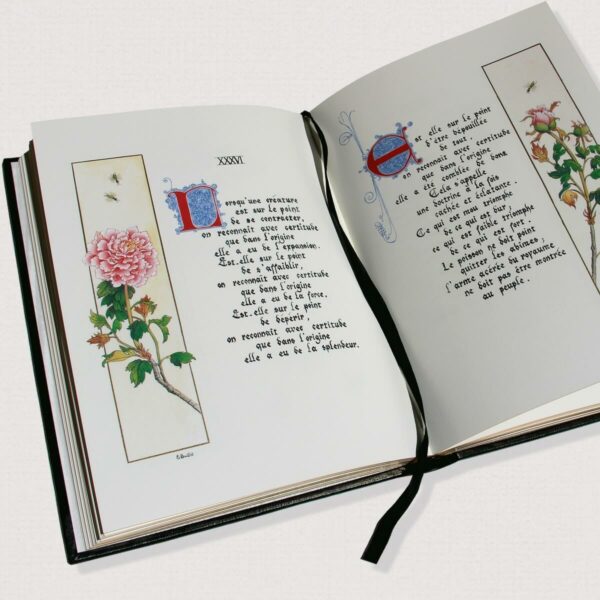 XXXVI
Lorsqu'une créature
est sur le point
de se contracter,
on reconnaît avec certitude
que dans l'origine
elle a eu de l'expansion.
Est-elle sur le point
de s'affaiblir,
on reconnaît avec certitude
que dans l'origine
elle a eu de la force.
Est-elle sur le point
de dépérir,
on reconnaît avec certitude
que dans l'origine
elle a eu de la splendeur.
Est elle sur le point
d'être dépouillée
de tout,
on reconnaît avec certitude
que dans l'origine
elle a été comblée de dons
Cela s'appelle
une doctrine à la fois
cachée et éclatante.
Ce qui est mou triomphe
de ce qui est dur;
ce qui est faible triomphe
de ce qui est fort.
Le poisson ne doit point
quitter les abîmes;
l'arme acérée du royaume
ne doit pas être montrée
au peuple.